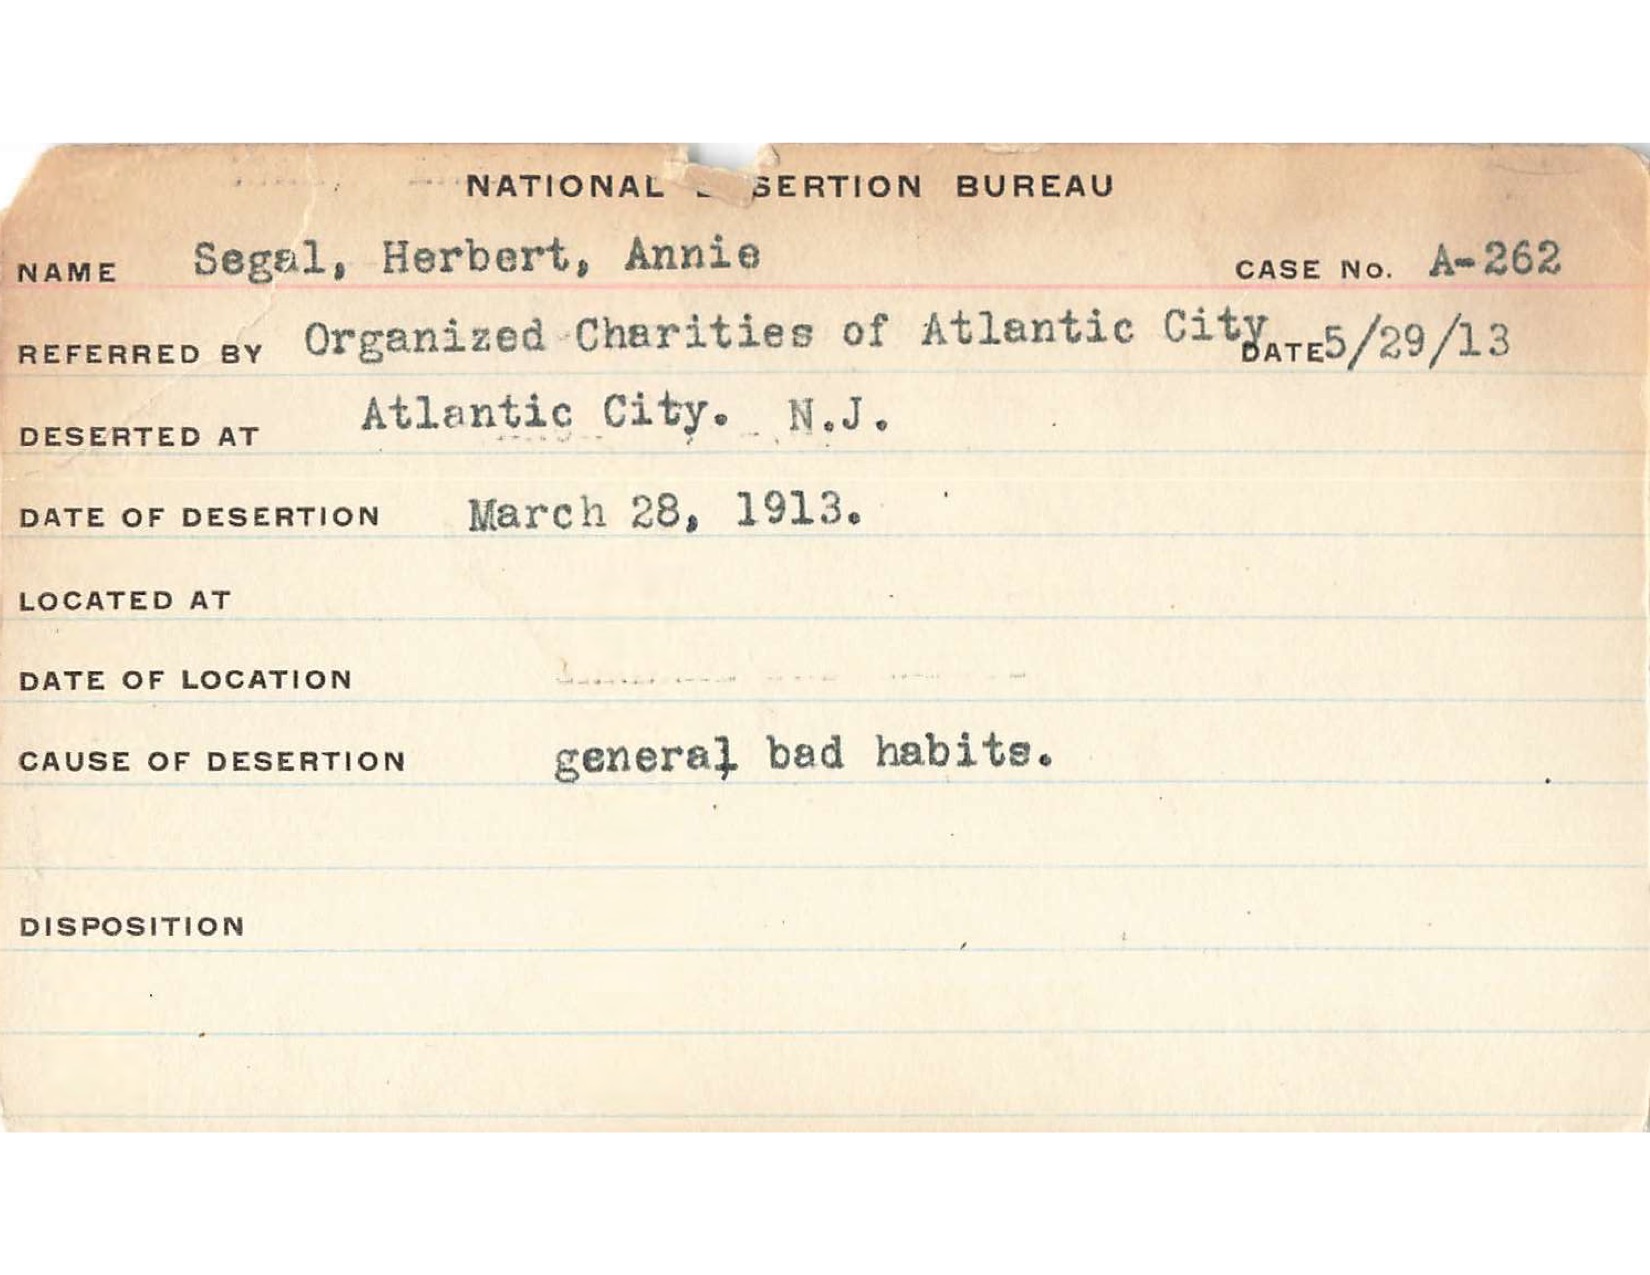 NATIONAL SERTION BUREAU
NAME Segal, Herbert, Annie CASE No. A-262
REFERRED BY Organized Charities of Atlantic City DATE 5/29/13
DESERTED AT Atlantic City. N.J.
DATE OF DESERTION March 28, 1913.
LOCATED AT
DATE OF LOCATION
CAUSE OF DESERTION general bad habits.
DISPOSITION